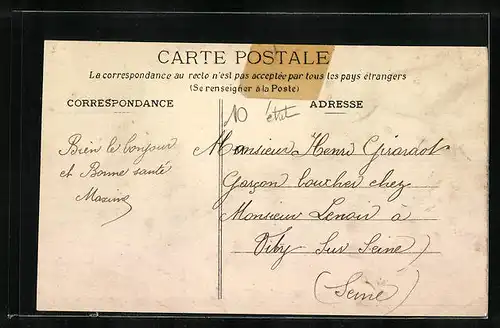 CARTE POSTALE
La correspondance au recto n'est pas acceptée par tous les pays étrangers
(Se renseigner à la Poste)
CORRESPONDANCE
ADRESSE
10
Bien le bonjour
et Bonne santé
Maxime
Monsieur Henri Girardot
Garçon boucher chez
Monsieur Lenoir à
Vitry sur Seine
(Seine)